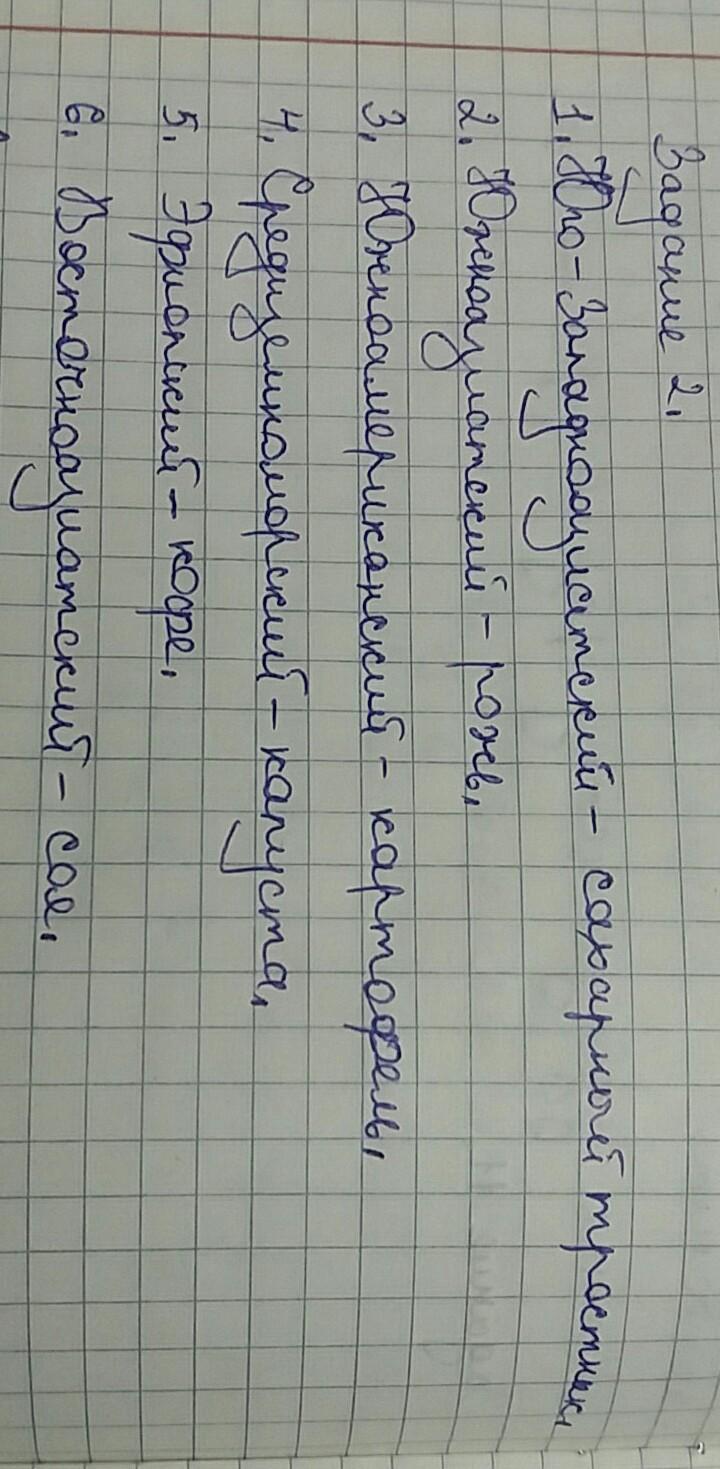 Задание 2.
1. Юго-Западноазиатский - сахарный тростник.
2. Южноазиатский - рожь.
3. Южноамериканский - картофель.
4. Средиземноморский - капуста.
5. Эфиопский - кофе.
6. Восточноазиатский - соя.